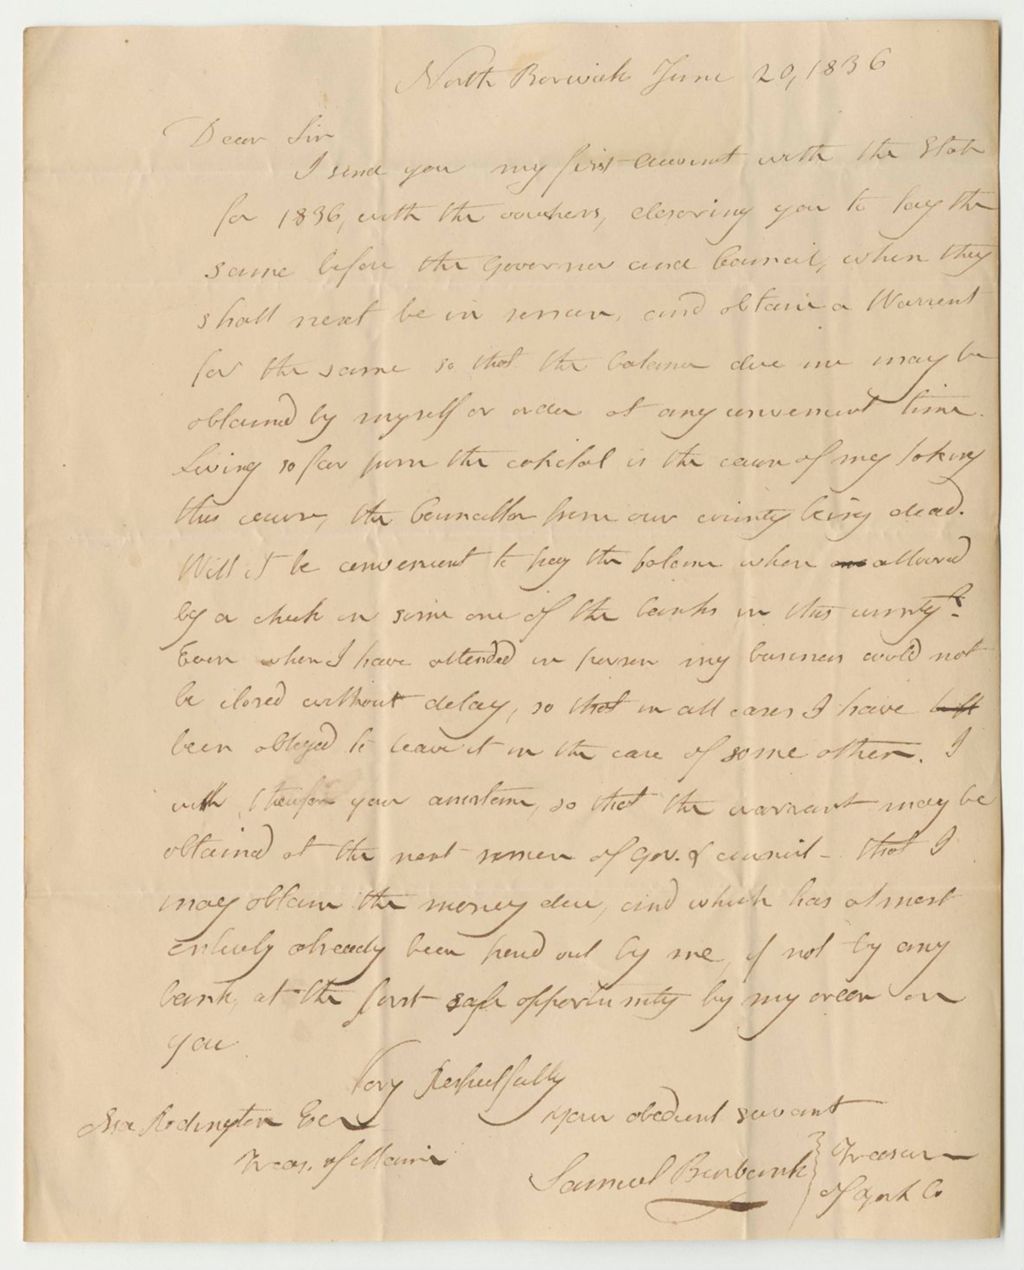 North Berwick June 20, 1836
Dear Sir
I send you my first account with the State
for 1836, with the vouchers, desiring you to lay the
same before the Governor and Council, when they
shall next be in session, and obtain a Warrent
for the same so that the balance due me may be
obtained by myself or order at any convenient time.
Living so far from the capitol is the cause of my taking
this course, the Councillor from our county being dead.
Will it be convenient to pay the balance when allowed
by a check on some one of the banks in this county?
Even when I have attended in person my business could not
be closed without delay, so that in all cases I have left
been obliged to leave it in the care of some other. I
wish therefore your assistance, so that the warrant may be
obtained at the next session of Gov. & council - that I
may obtain the money due, and which has almost
entirely already been paid out by me, if not by any
bank, at the first safe opportunity by my order on
you
Very Respectfully
your obedient servant
Asa Redington Esr
Treas. of Maine
Samuel Burbank } Treasurer
of York Co